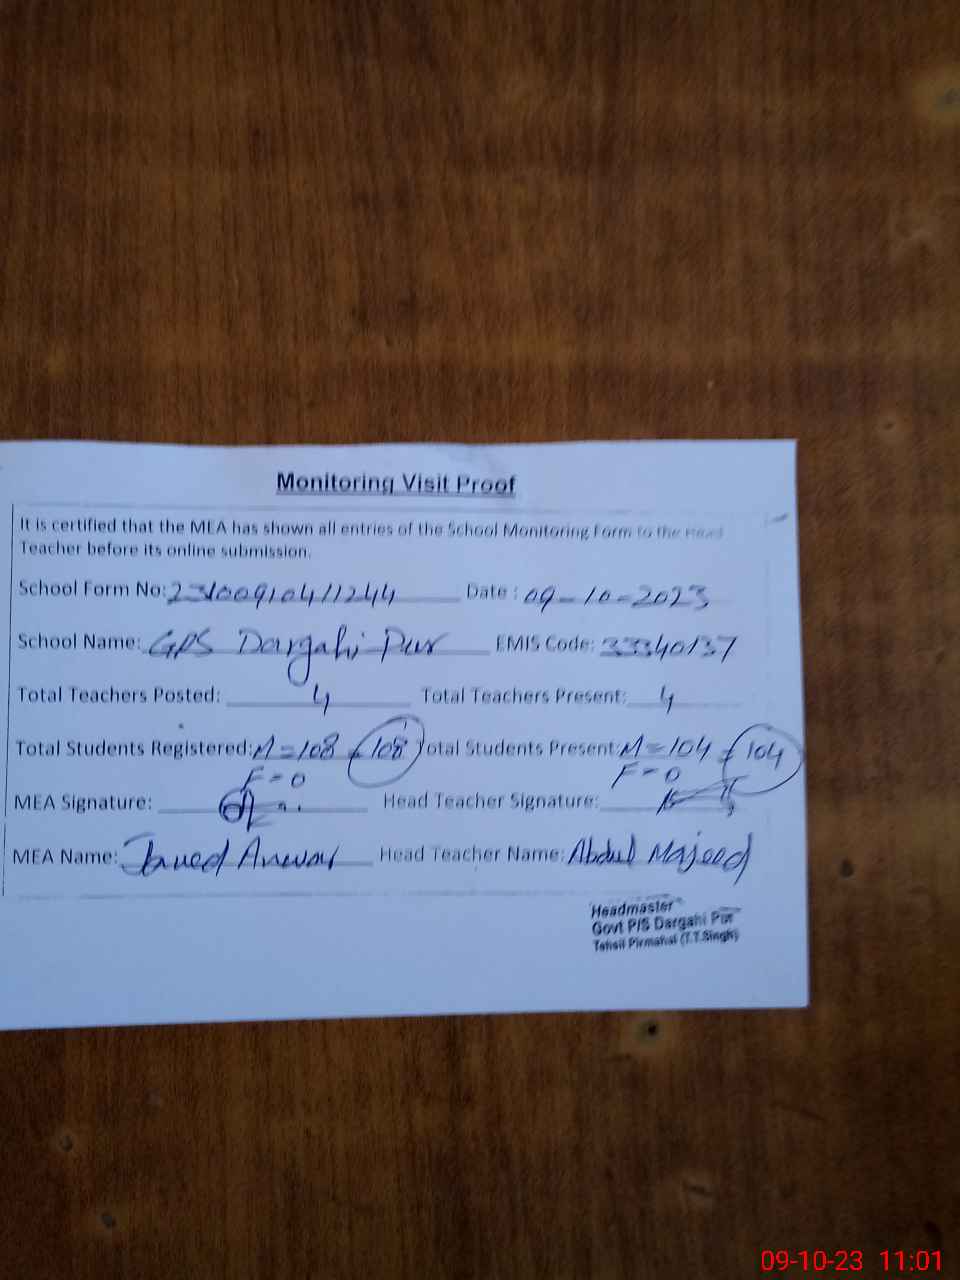 Monitoring Visit Proof
It is certified that the MEA has shown all entries of the School Monitoring Form to the Head
Teacher before its online submission.
School Form No: 23100910411244 Date : 09-10-2023
School Name: GPS Dargahi Pur EMIS Code: 33340137
Total Teachers Posted: 4 Total Teachers Present: 4
Total Students Registered: M=108 = 108 Total Students Present: M=104 = 104
F=0 F=0
MEA Signature: Head Teacher Signature:
MEA Name: Javed Anwar Head Teacher Name: Abdul Majeed
Headmaster
Govt P/S Dargahi Pur
Tehsil Pirmahal (T.T.Singh)
09-10-23 11:01